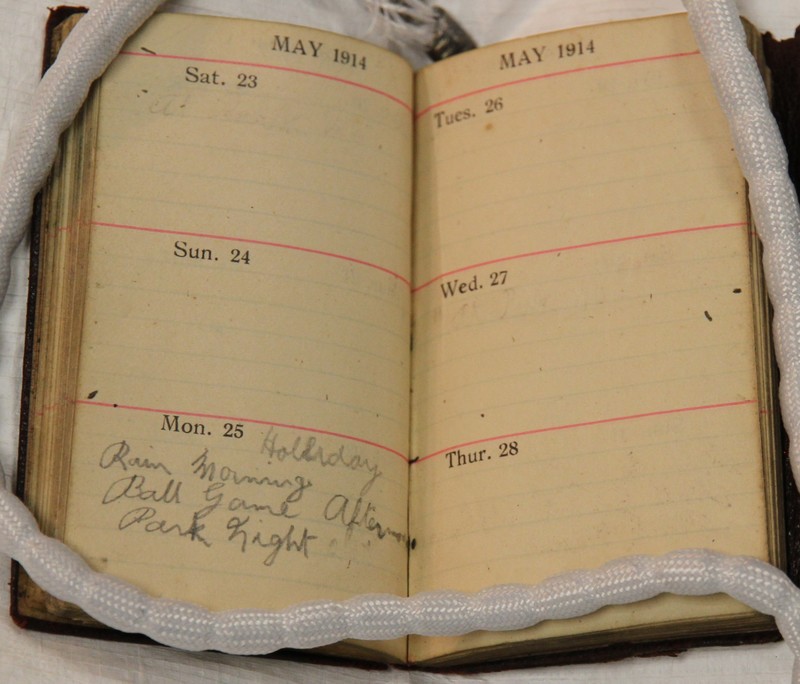 MAY 1914
Sat. 23
Sun. 24
Mon. 25 Holliday
Rain Morning
Ball Game Afternoon
Park Night
MAY 1914
Tues. 26
Wed. 27
Thur. 28